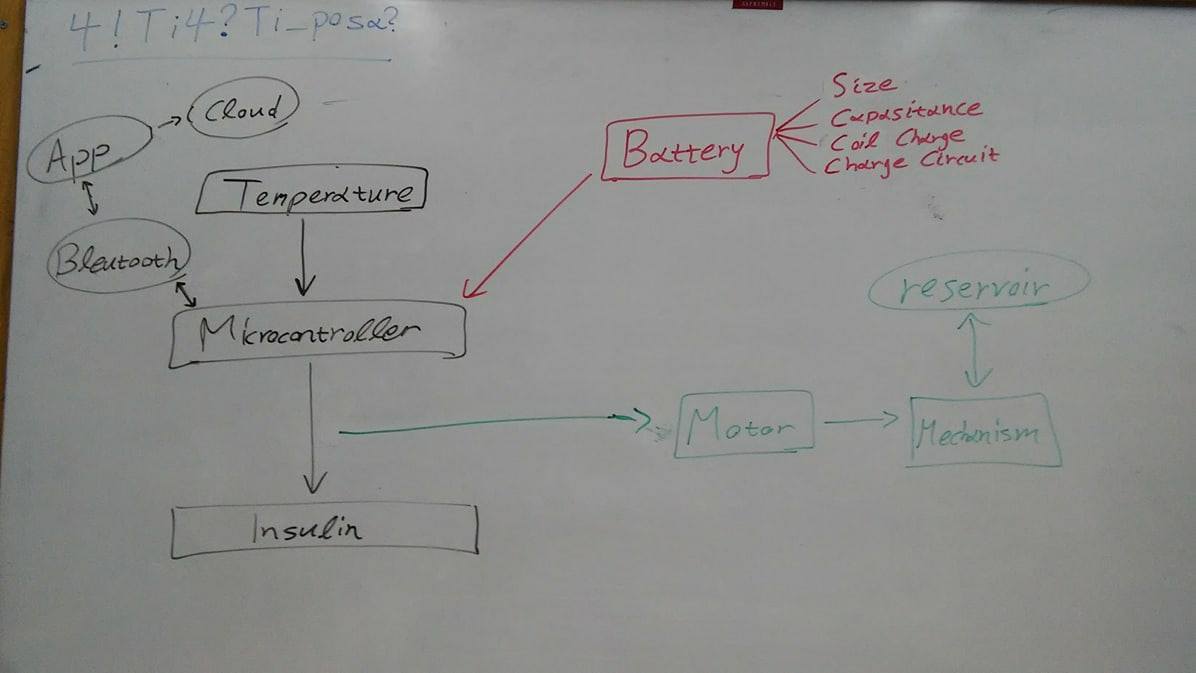 4! Ti4? Ti_posa?
Cloud
App
Temperature
Bleutooth
Microcontroller
Insulin
Battery
Size
Capasitance
Coil Charge
Charge Circuit
reservoir
Motor
Mechanism